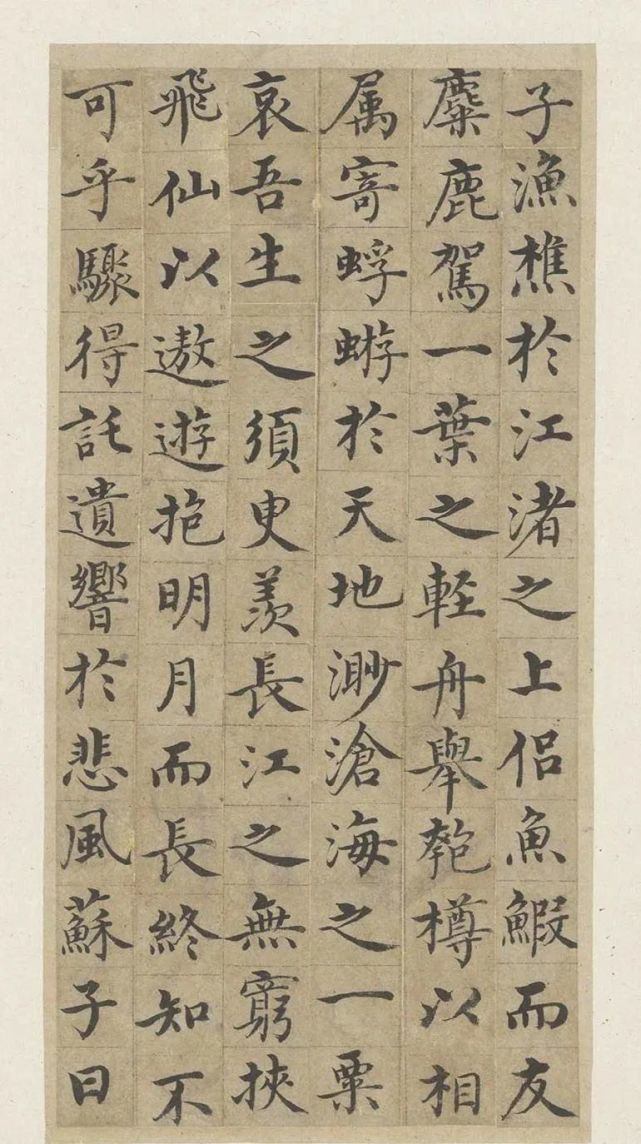 子漁樵於江渚之上侣魚鰕而友
麋鹿駕一葉之軽舟舉匏樽以相
属寄蜉蝣於天地渺滄海之一粟
哀吾生之須臾羨長江之無窮挾
飛仙以遨遊抱明月而長終知不
可乎驟得託遺響於悲風蘇子曰